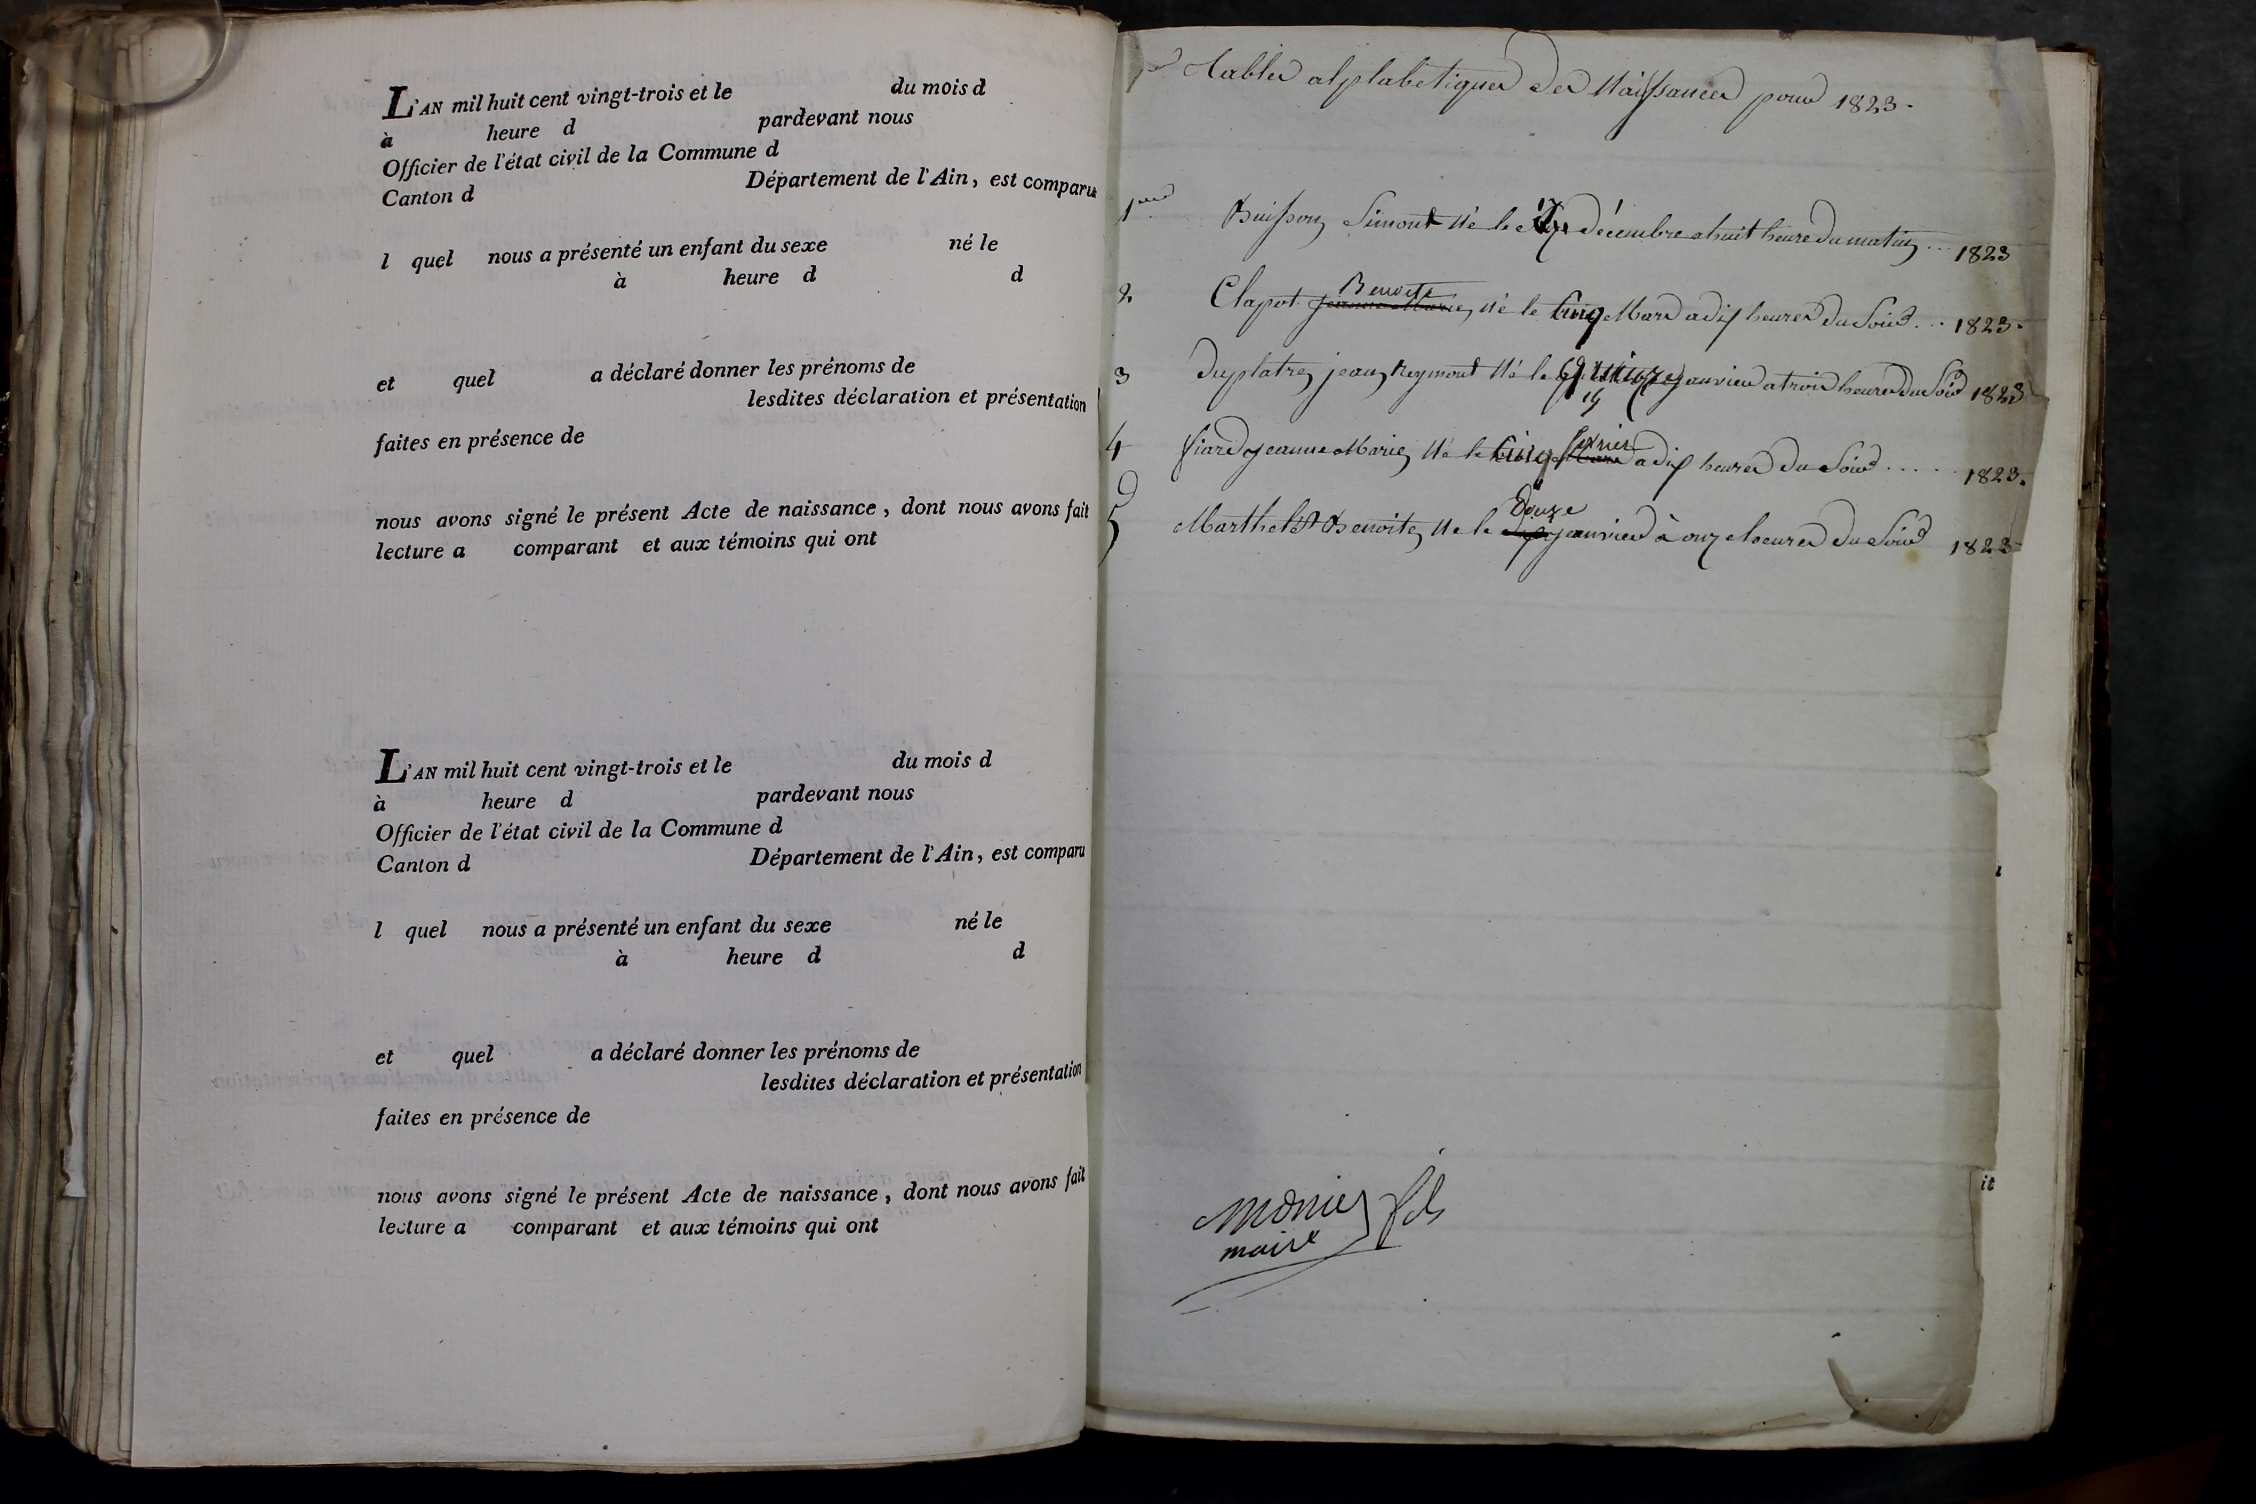 L'AN mil huit cent vingt-trois et le du mois d
à heure d pardevant nous
Officier de l'état civil de la Commune d
Canton d Département de l'Ain, est comparu
l quel nous a présenté un enfant du sexe né le
à heure d d
et quel a déclaré donner les prénoms de
lesdites déclaration et présentation
faites en présence de
nous avons signé le présent Acte de naissance, dont nous avons fait
lecture a comparant et aux témoins qui ont
L'AN mil huit cent vingt-trois et le du mois d
à heure d pardevant nous
Officier de l'état civil de la Commune d
Canton d Département de l'Ain, est comparu
l quel nous a présenté un enfant du sexe né le
à heure d d
et quel a déclaré donner les prénoms de
lesdites déclaration et présentation
faites en présence de
nous avons signé le présent Acte de naissance, dont nous avons fait
lecture a comparant et aux témoins qui ont
Tables alphabetiques des Naissances pour 1823.
1 Buisson Simont Né le décembre a huit heure du matin ... 1823
Benoite
2 Clapot jeanne Marie Né le cinq Mars a dix heures du Soir ... 1823.
3 Duplatre jean Reymont Né le quinze janvier a trois heures du Soir 1823
15
fevrier
4 fiard jeanne Marie Né le cinq Mars a dix heures du Soir ..... 1823.
Douze
5 Marthelet Benoite Né le janvier à onze heures du Soir 1823
Monier fils
maire
it